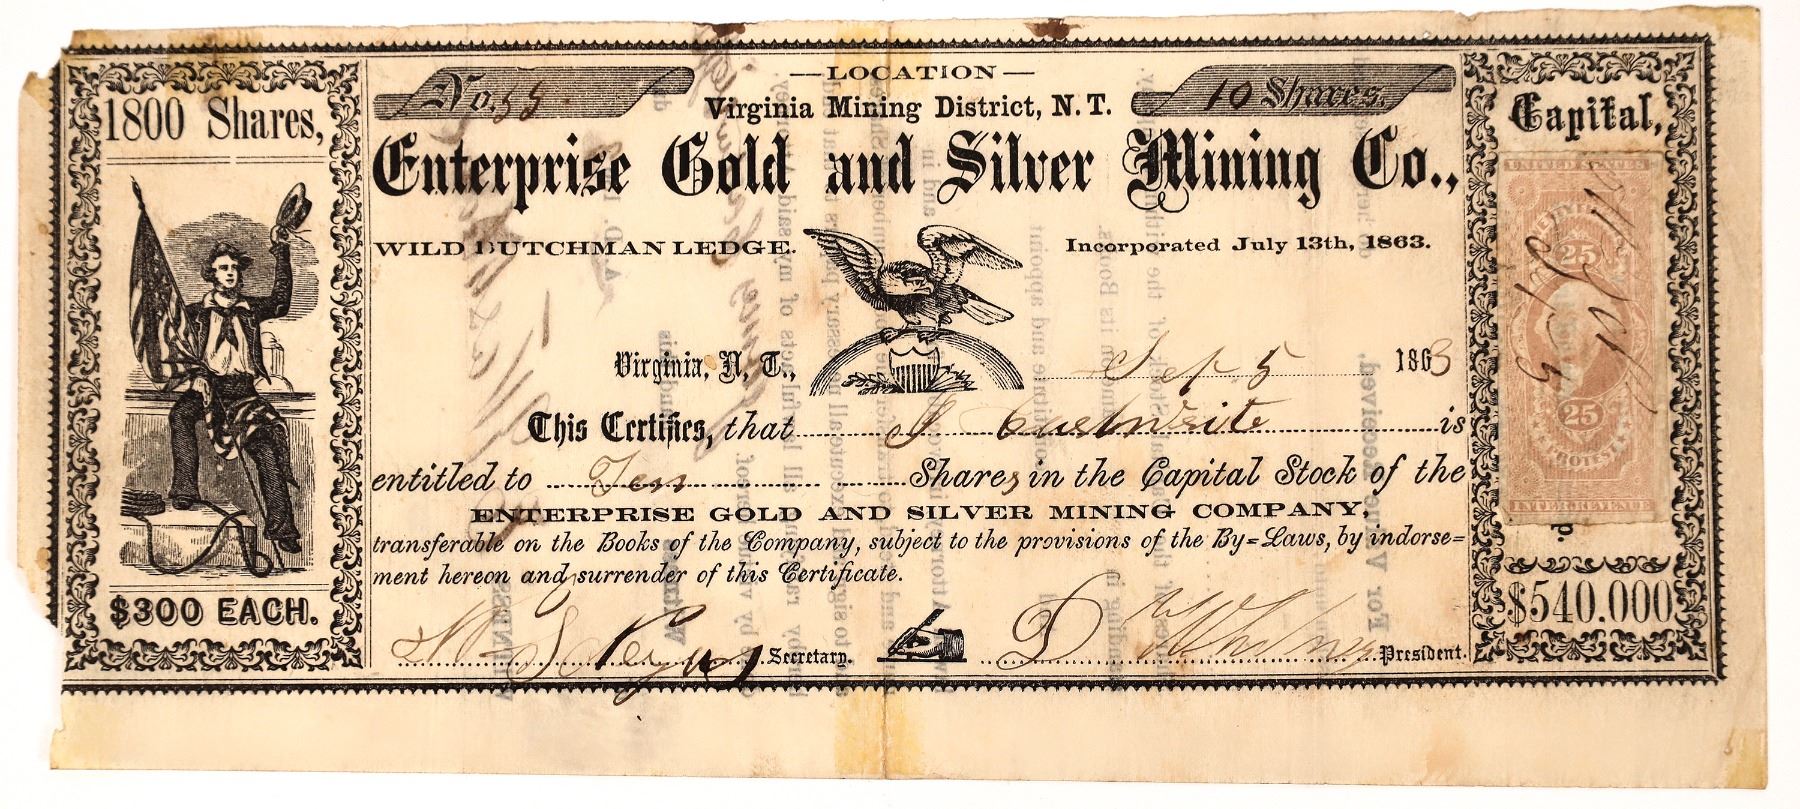 1800 Shares,
$300 EACH.
No. 55
—LOCATION—
Virginia Mining District, N. T.
10 Shares.
Enterprise Gold and Silver Mining Co.,
WILD DUTCHMAN LEDGE.
Incorporated July 13th, 1863.
Virginia, N, T., Sep 5 1863
This Certifies, that J Cartwrite is
entitled to Ten Shares in the Capital Stock of the
ENTERPRISE GOLD AND SILVER MINING COMPANY,
transferable on the Books of the Company, subject to the provisions of the By=Laws, by indorse=
ment hereon and surrender of this Certificate.
Secretary.
D Whitney President.
Capital,
UNITED STATES
25
25
PROTEST
INTER. REVENUE
$540.000